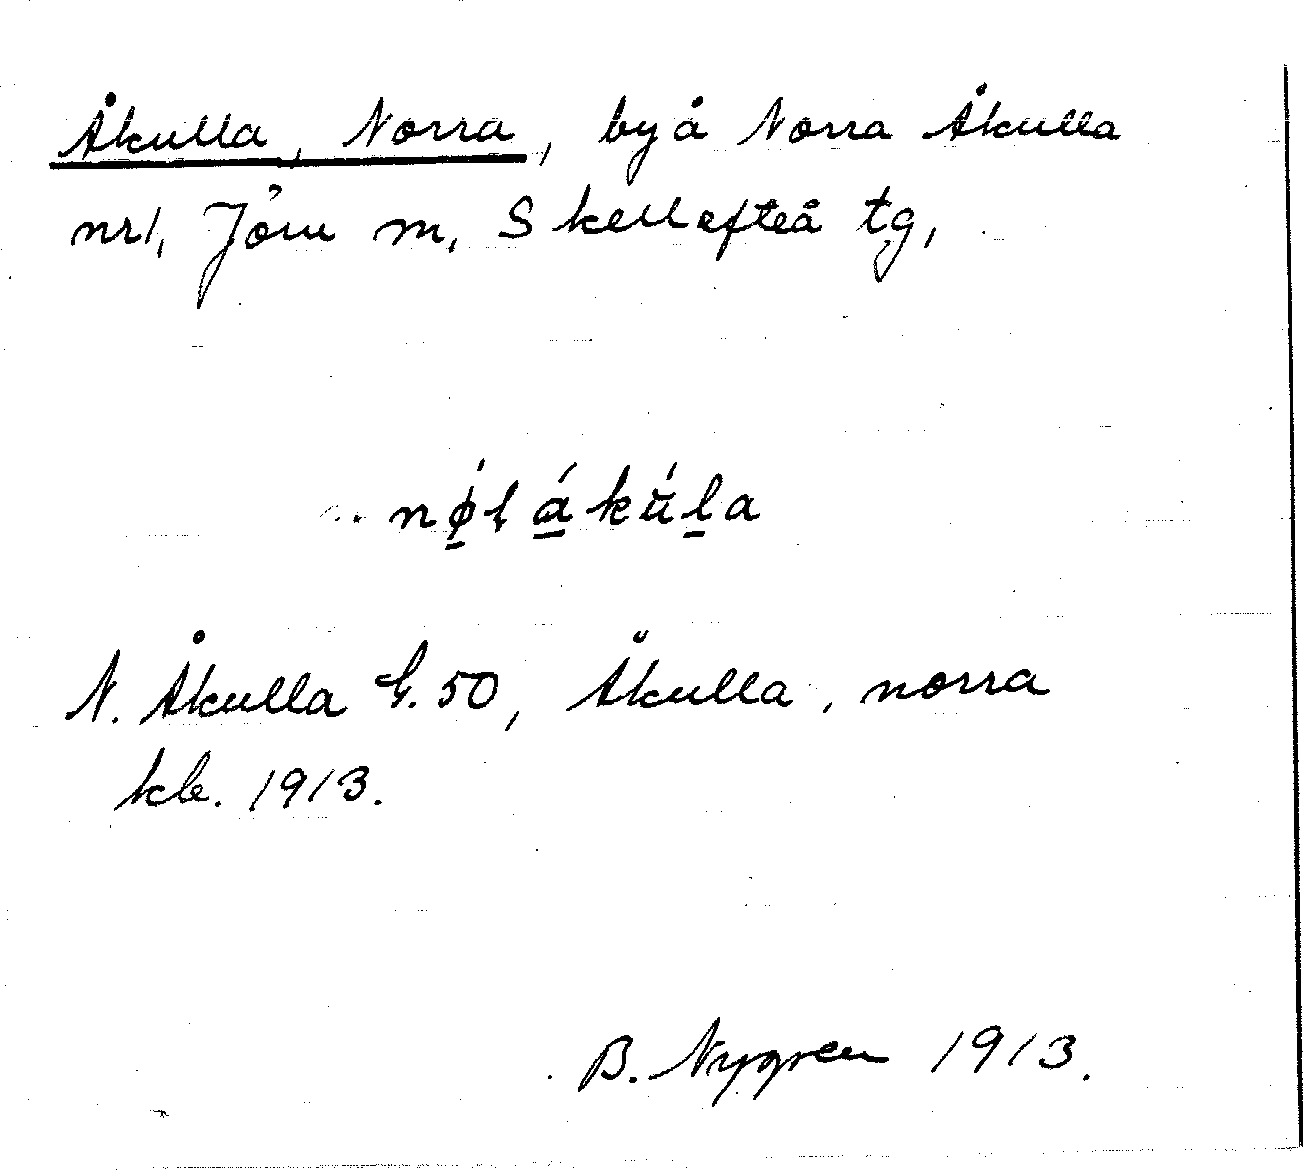 Åkulla, Norra, by å Norra Åkulla
nr 1, Jörn m, Skellefteå tg,
nǿl ákúla
N. Åkulla G. 50, Åkulla, norra
kb. 1913.
B. Nygren 1913.